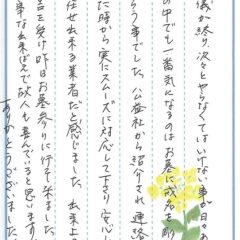 儀が終り、次々とやらなくてはいけない事が日々の
の中でも一番気になるのはお墓に戒名を彫
らう事でした。公益社から紹介され、連絡
た時から実にスムーズに対応して下さり、安心し
任せ出来る業者だと感じました。出来上
告を受け昨日お墓参りに行き来ました
事な出来ばえで故人も喜んでいると思います
ありがとうございました